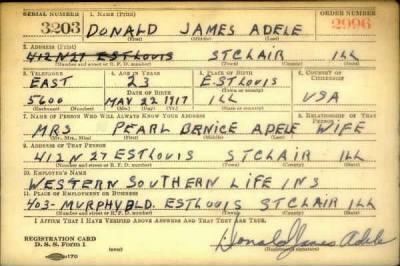 SERIAL NUMBER 1. NAME (Print) ORDER NUMBER
3203 DONALD JAMES ADELE 2996
(First) (Middle) (Last)
2. ADDRESS (Print)
412 N 27 EST LOUIS ST CLAIR ILL
(Number and street or R. F. D. number) (Town) (County) (State)
3. TELEPHONE 4. AGE IN YEARS 5. PLACE OF BIRTH 6. COUNTRY OF CITIZENSHIP
EAST 23 E. ST LOUIS
DATE OF BIRTH (Town or county)
5600 MAY 22 1917 ILL USA
(Exchange) (Number) (Mo.) (Day) (Yr.) (State or country)
7. NAME OF PERSON WHO WILL ALWAYS KNOW YOUR ADDRESS 8. RELATIONSHIP OF THAT PERSON
MRS PEARL BERNICE ADELE WIFE
(Mr., Mrs., Miss) (First) (Middle) (Last)
9. ADDRESS OF THAT PERSON
412 N 27 EST LOUIS ST CLAIR ILL
(Number and street or R. F. D. number) (Town) (County) (State)
10. EMPLOYER'S NAME
WESTERN SOUTHERN LIFE INS
11. PLACE OF EMPLOYMENT OR BUSINESS
403- MURPHY BLD. EST LOUIS ST CLAIR ILL
(Number and street or R. F. D. number) (Town) (County) (State)
I AFFIRM THAT I HAVE VERIFIED ABOVE ANSWERS AND THAT THEY ARE TRUE.
REGISTRATION CARD
D. S. S. Form 1 Donald James Adele